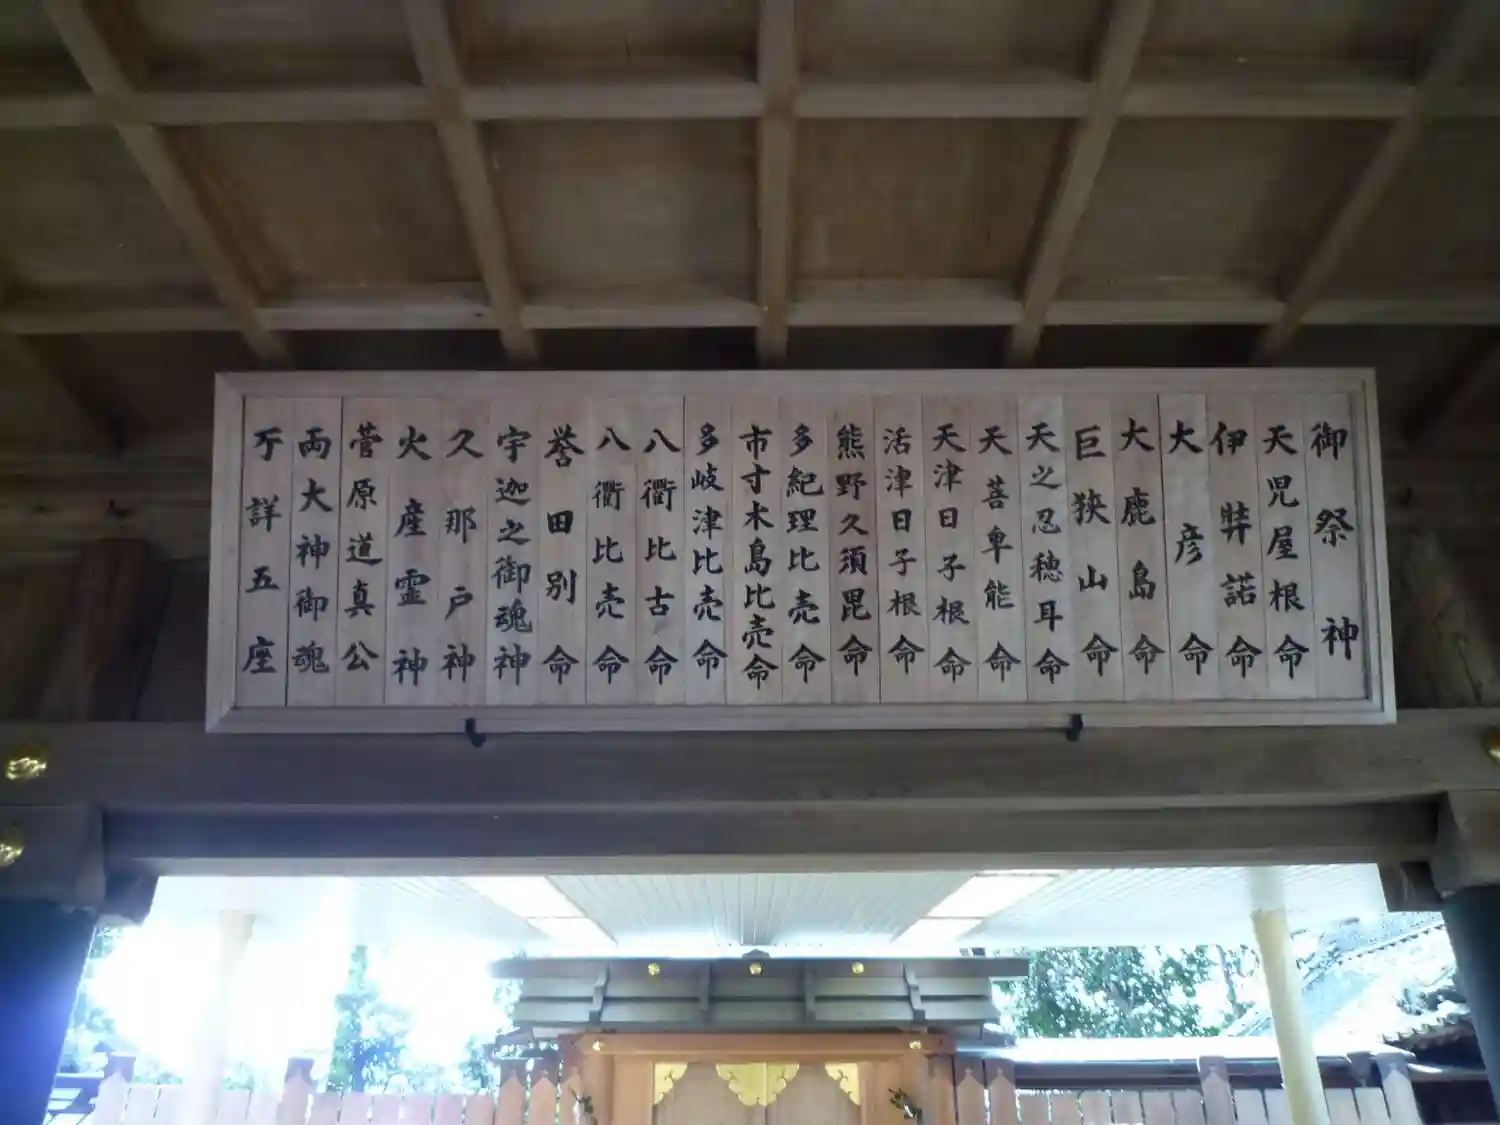 御祭神
天児屋根命
伊弉諾命
大彦命
大鹿島命
巨狭山命
天之忍穂耳命
天菩卑能命
天津日子根命
活津日子根命
熊野久須毘命
多紀理比売命
市寸木島比売命
多岐津比売命
八衢比古命
八衢比売命
誉田別命
宇迦之御魂神
久那戸神
火産霊神
菅原道真公
両大神御魂
不詳五座